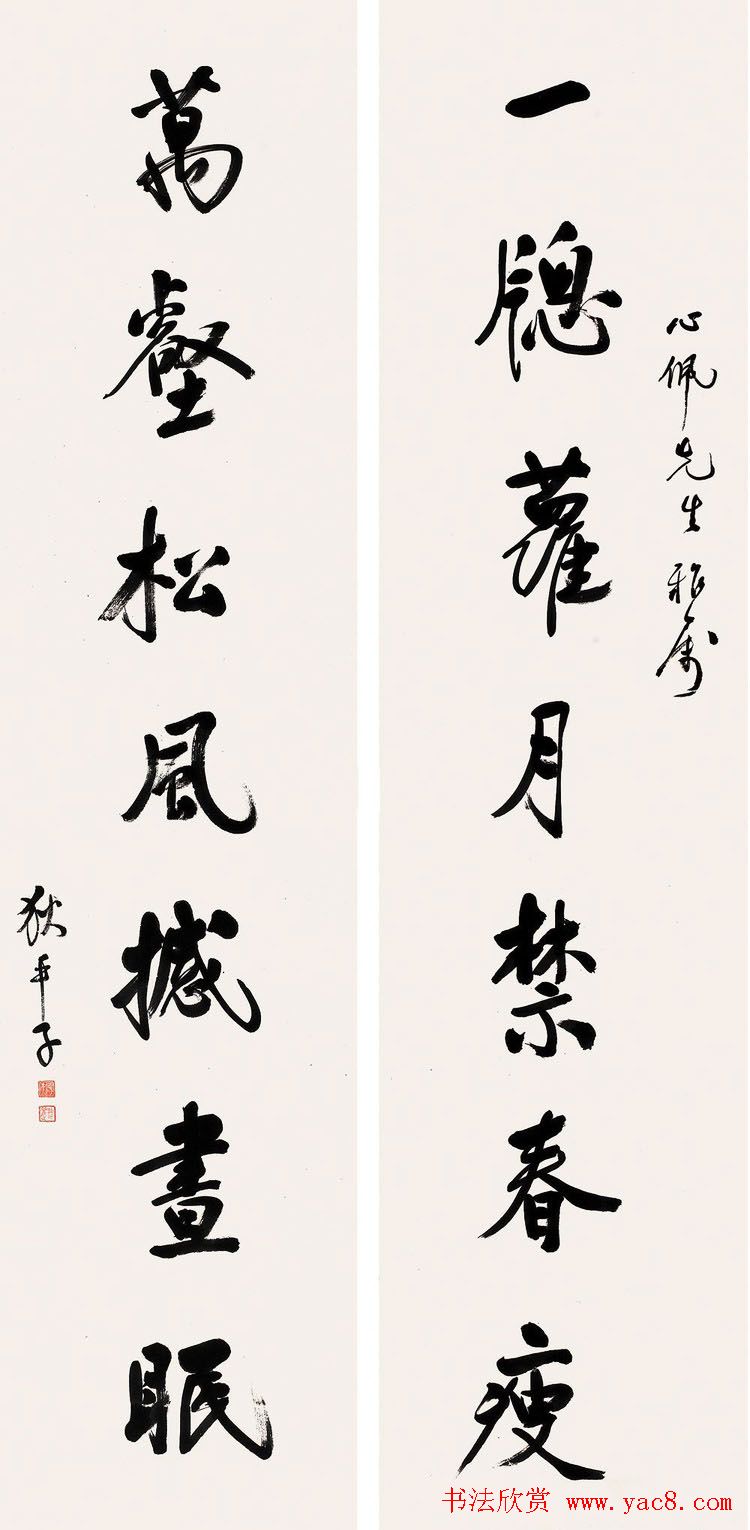 心佩先生雅属
一牕蘿月禁春瘦
萬壑松風撼晝眠
狄平子
书法欣赏 www.yac8.com